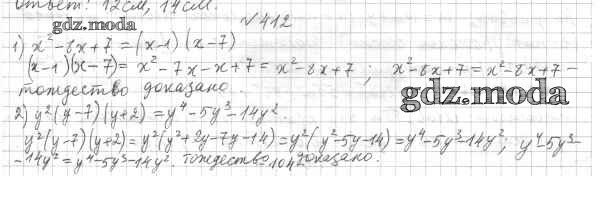 Ответ: 12 см, 14 см.
gdz.moda
№412
1) x²-8x+7=(x-1)(x-7)
(x-1)(x-7)=x²-7x-x+7=x²-8x+7; x²-8x+7=x²-8x+7-
тождество доказано.
gdz.moda
2) y²(y-7)(y+2)=y⁴-5y³-14y².
y²(y-7)(y+2)=y²(y²+2y-7y-14)=y²(y²-5y-14)=y⁴-5y³-14y²; y⁴-5y³-
-14y²=y⁴-5y³-14y². тождество доказано.
104